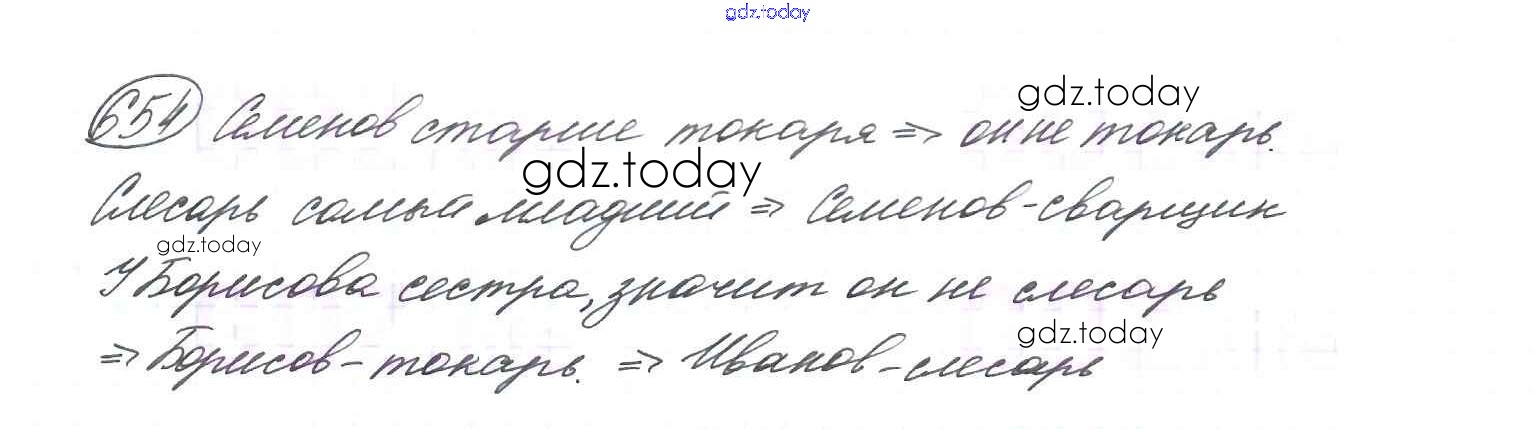 gdz.today
gdz.today
654 Семенов старше токаря => он не токарь.
gdz.today
Слесарь самый младший => Семенов-сварщик
gdz.today
У Борисова сестра, значит он не слесарь
gdz.today
=> Борисов-токарь. => Иванов-слесарь